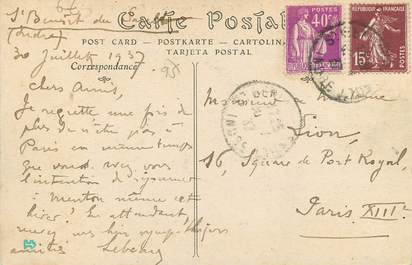 St Benoît du Sault
(Indre)
30 juillet 1937
Carte Postale
POST CARD - POSTKARTE - CARTOLINA
TARJETA POSTAL
Correspondance
95
RÉPUBLIQUE FRANÇAISE
40c
POSTES
15c
chers amis,
Je regrette une fois de
plus de n'être pas à
Paris en même temps
que vous. Avez vous
l'intention de séjourner
à Menton même cet
hiver? En attendant,
mes sympathiques
amitiés
Monsieur
Lion,
16, Square de Port Royal,
Paris XIIIe